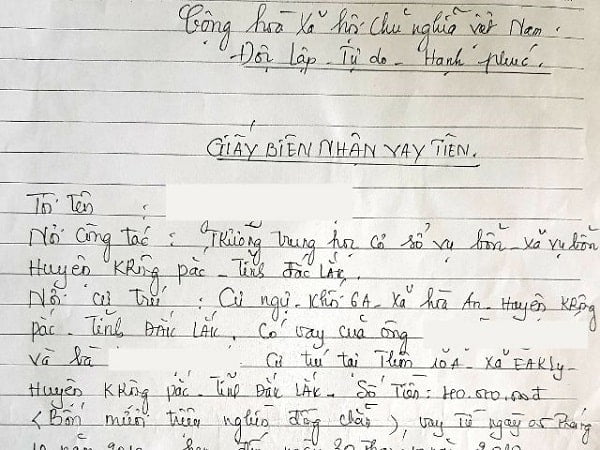 Cộng hoà xã hội chủ nghĩa việt Nam.
Độc lập - Tự do - Hạnh phúc.
GIẤY BIÊN NHẬN VAY TIỀN.
Tôi tên :
Nơi công tác : Trường trung học cơ sở vụ bổn - xã vụ bổn
Huyện KRông pắc - Tỉnh đắc LẮK.
Nơi cư trú : Cư ngụ - Khối 6A - xã hòa An - Huyện KRông
pắc - Tỉnh ĐẮK LẮK. Có vay của ông
và bà Cư trú tại Thôn 10A - xã EAKly -
Huyện KRông pắc - Tỉnh Đắk LẮK - Số Tiền: 40.000.000đ
(Bốn mươi triệu nghìn đồng chẵn), vay Từ ngày 05 tháng